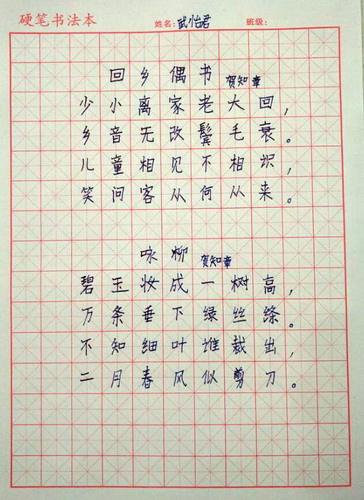 硬笔书法本 姓名: 武怡君 班级:
回乡偶书 贺知章
少小离家老大回,
乡音无改鬓毛衰。
儿童相见不相识,
笑问客从何从来。
咏柳 贺知章
碧玉妆成一树高,
万条垂下绿丝绦。
不知细叶谁裁出,
二月春风似剪刀。